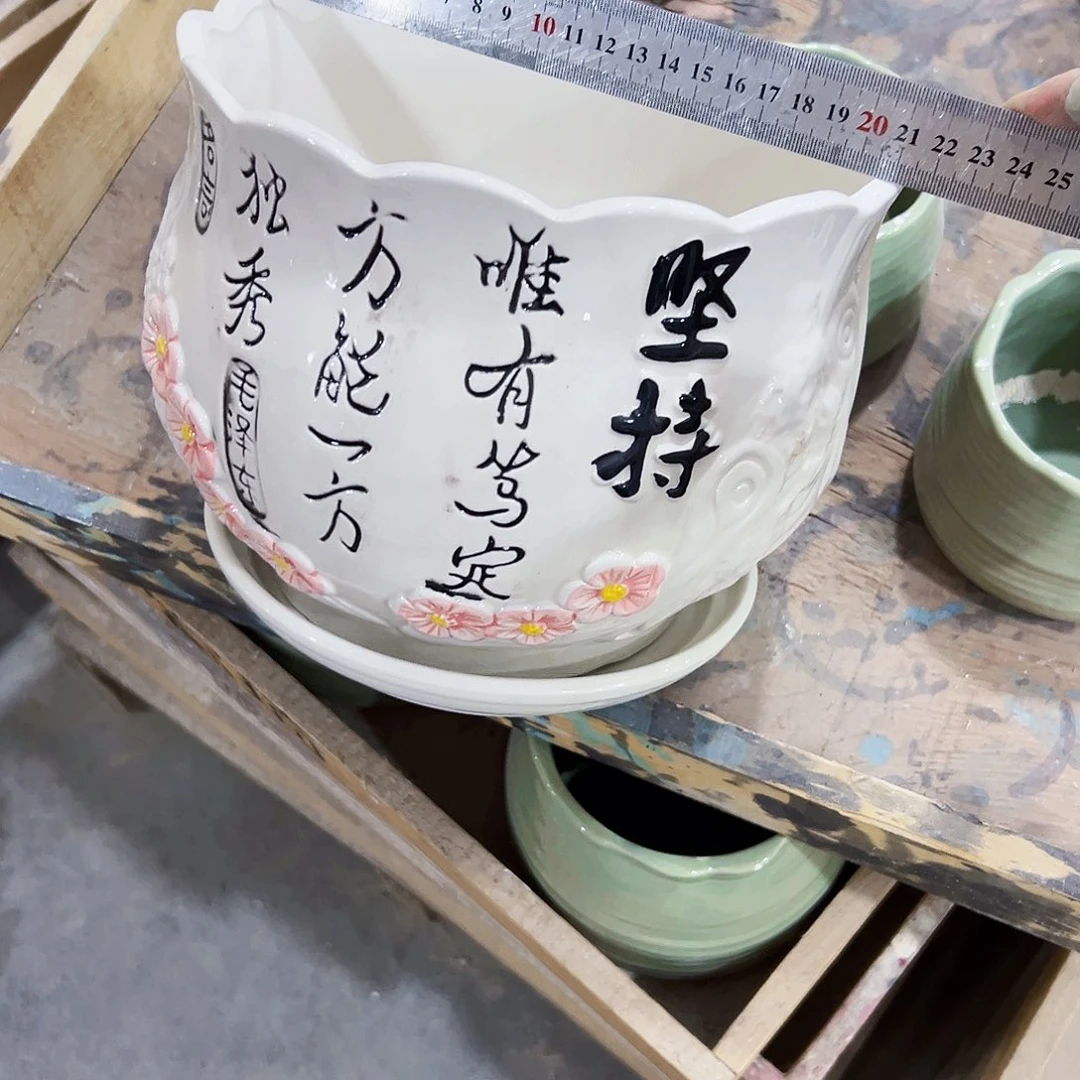 坚持
唯有笃定
方能一方
独秀
毛泽东
7 8 9 10 11 12 13 14 15 16 17 18 19 20 21 22 23 24 25